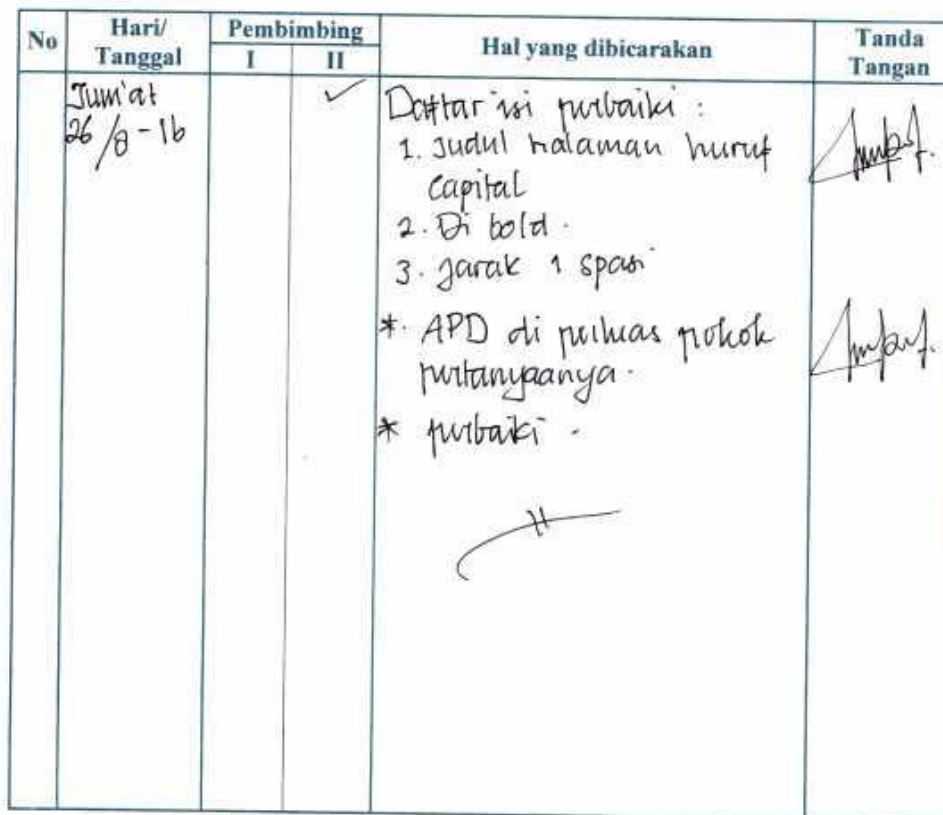 No
Hari/
Tanggal
Pembimbing
I II
Hal yang dibicarakan
Tanda
Tangan
Jum'at
26/8-16
✓
Daftar isi perbaiki :
1. Judul halaman huruf
Capital
2. Di bold.
3. Jarak 1 spasi
*. APD di perluas pokok
pertanyaanya.
* perbaiki.